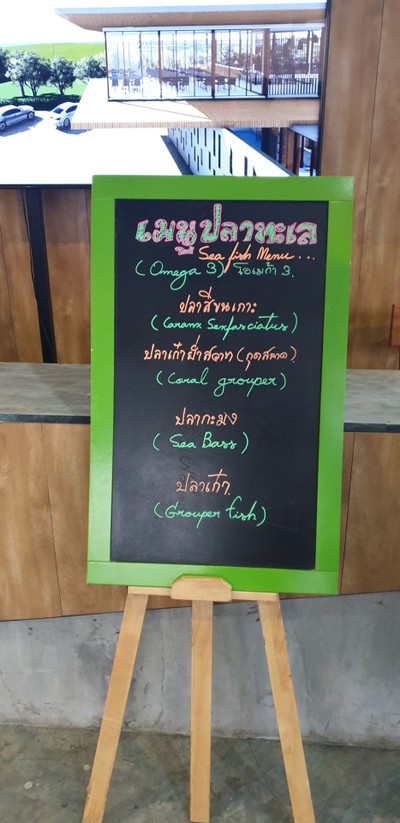 เมนูปลาทะเล
Sea fish Menu...
(Omega 3) โอเมก้า 3.
ปลาสีขนเกาะ
(Caranx Sexfasciatus)
ปลาเก๋าย่ำสวาท (กุดสลาด)
(Coral grouper)
ปลากะมง
(Sea Bass)
ปลาเก๋า
(Grouper fish)